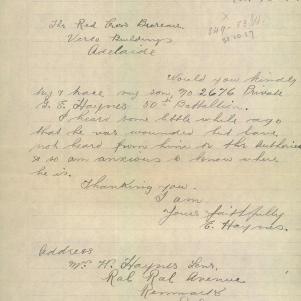 The Red Cross Bureau.
Verco Buildings
Adelaide
Would you kindly
try & trace my son, No 2676 Private
G. E. Haynes 50th Battallion.
I heard some little while ago
that he was wounded but have
not heard from him or the Authorities
& so am anxious to know where
he is.
Thanking you.
I am
Yours faithfully
E. Haynes.
Address
Mrs H. Haynes Senr.
Ral Ral Avenue
Renmark